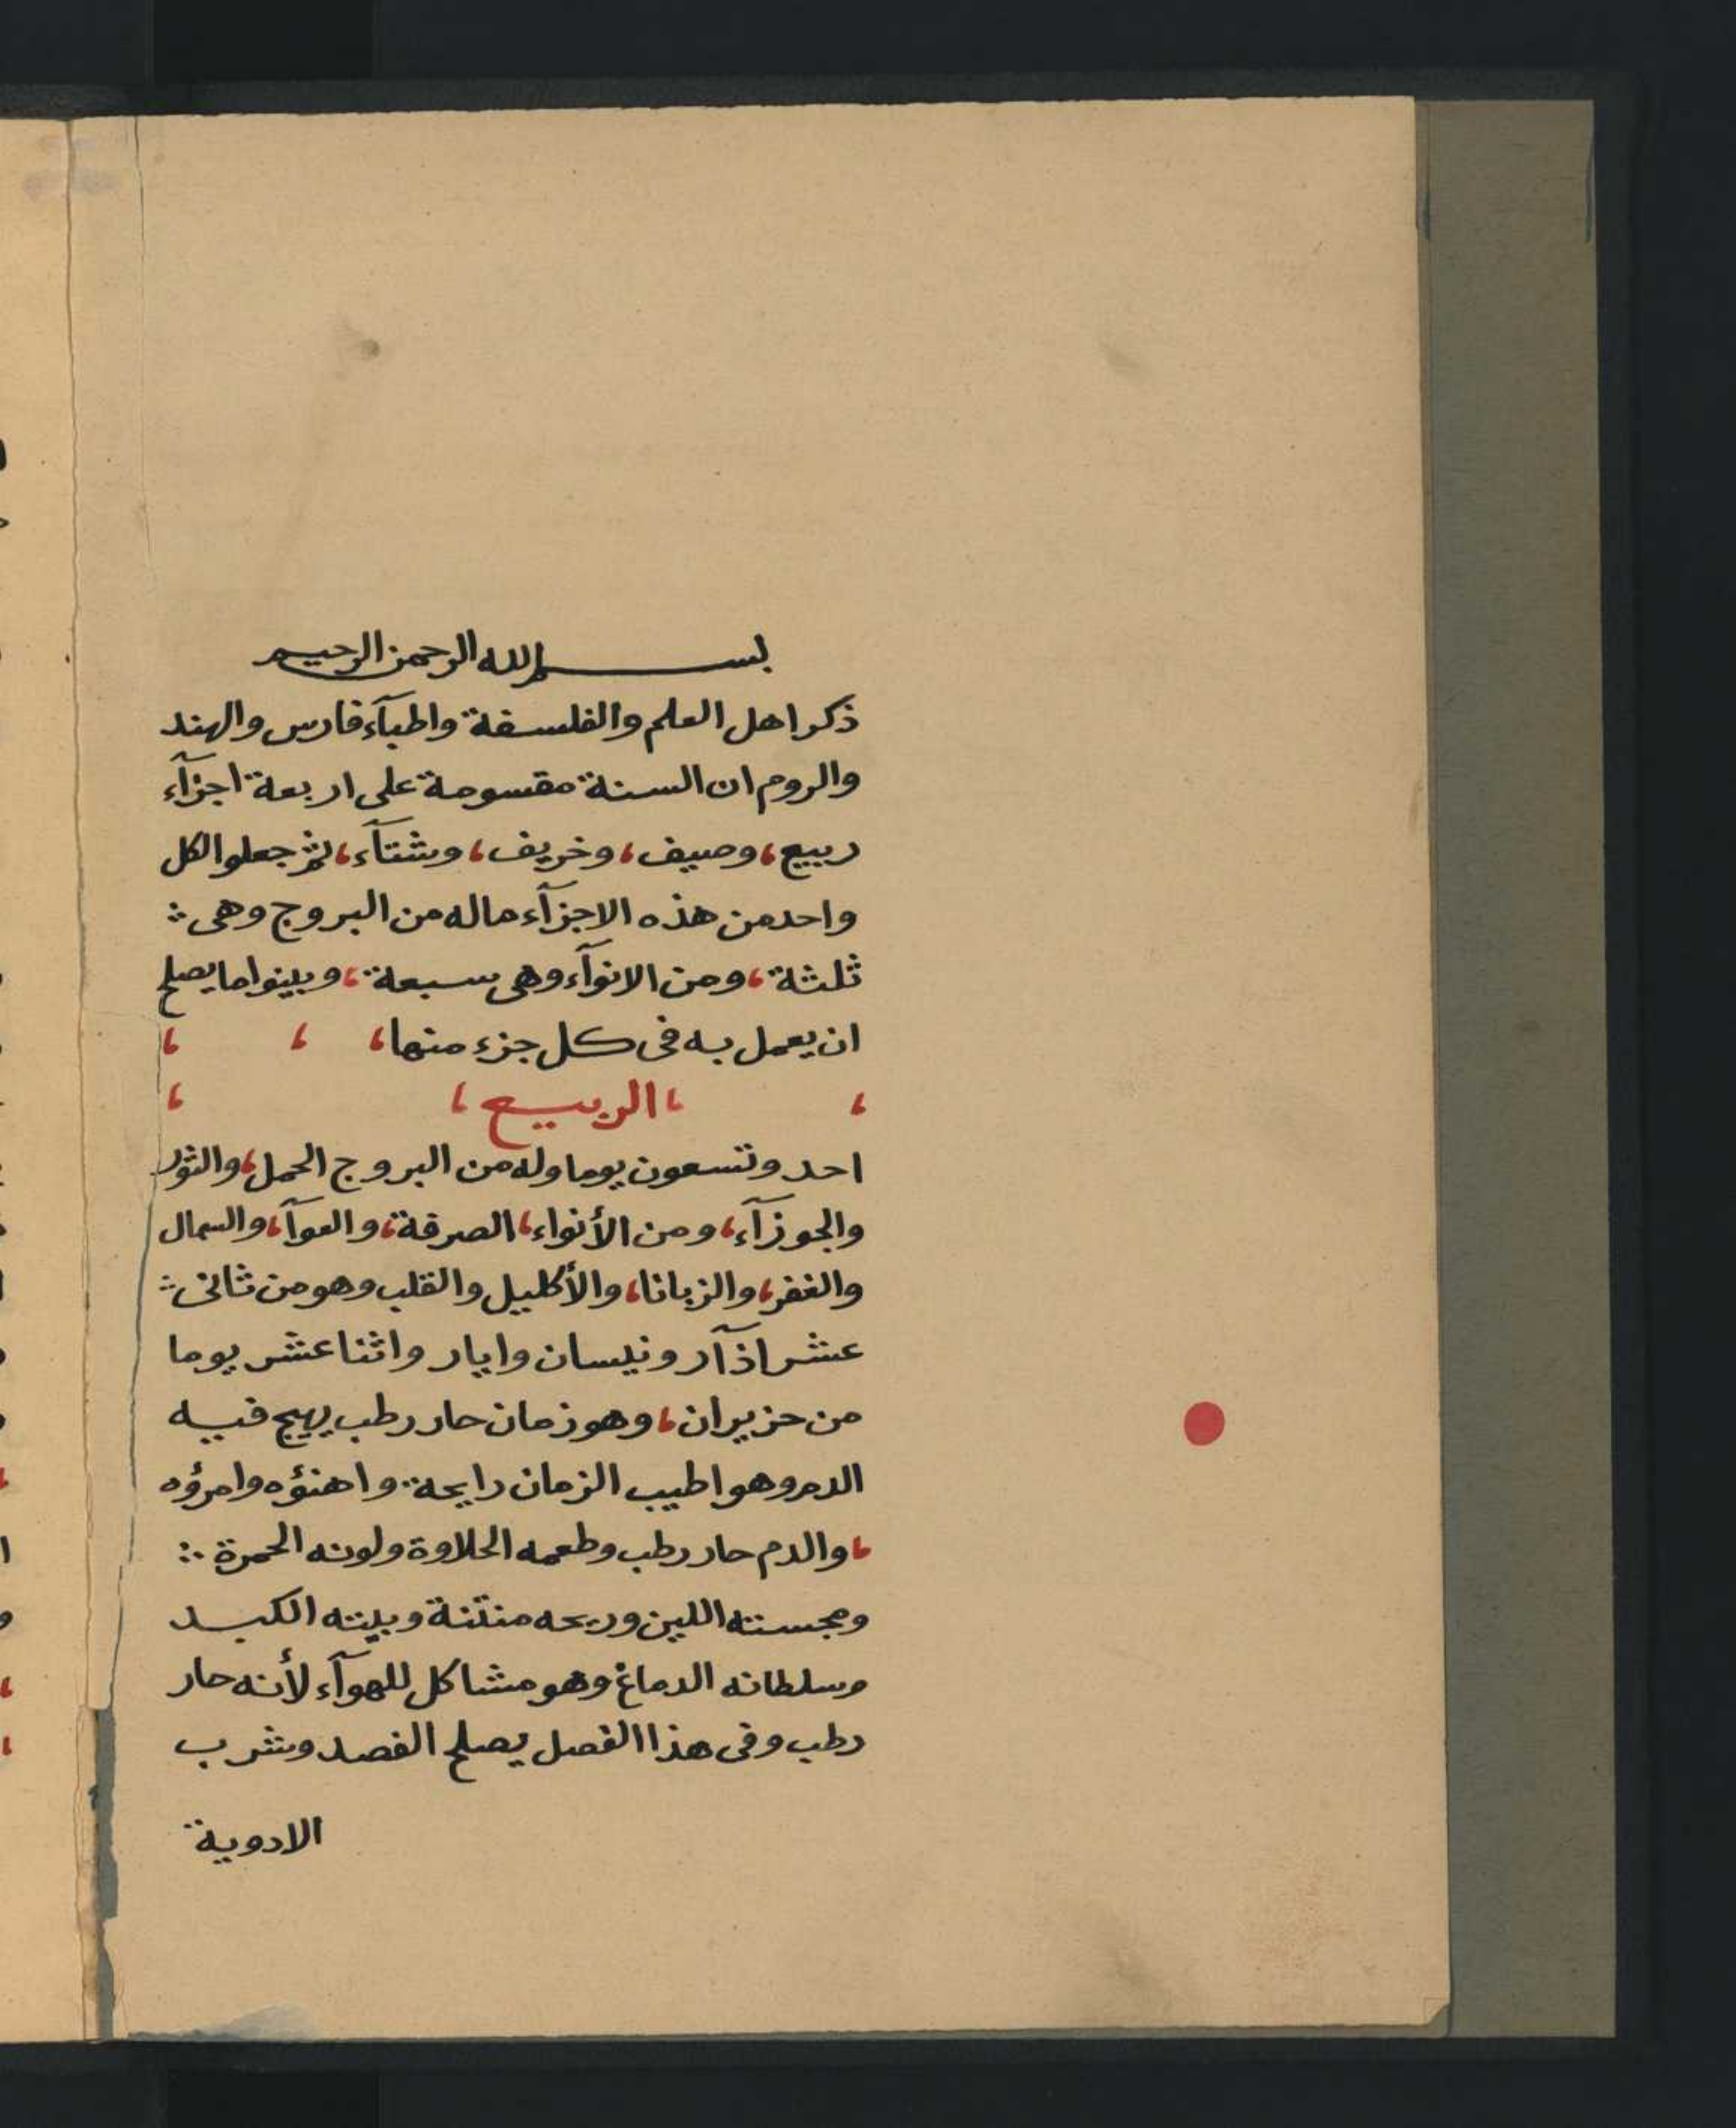 بسم الله الرحمن الرحيم
ذكر اهل العلم والفلسفة واطبآء فارس والهند
والروم ان السنة مقسومة على اربعة اجزآء
ربيع، وصيف، وخريف، وشتآء، ثم جعلوا لكل
واحد من هذه الاجزآء ماله من البروج وهى
ثلثة، ومن الانوآء وهى سبعة، وبينوا ما يصلح
ان يعمل به فى كل جزء منها، ، ،
، ، الربيع ، ،
احد وتسعون يوما وله من البروج الحمل، والثور
والجوزآء، ومن الأنواء، الصرفة، والعوآ، والسمال
والغفر، والزبانا، والأكليل والقلب وهو من ثانى
عشر اذآر ونيسان وايار واثنا عشر يوما
من حزيران، وهو زمان حار رطب يهيج فيه
الدم وهو اطيب الزمان رايحة واهنؤه وامرؤه
، والدم حار رطب وطعمه الحلاوة ولونه الحمرة
ومجسته اللين وريحه منتنة وبيته الكبد
وسلطانه الدماغ وهو مشاكل للهوآء لأنه حار
رطب وفى هذا الفصل يصلح الفصد وشرب
الادوية